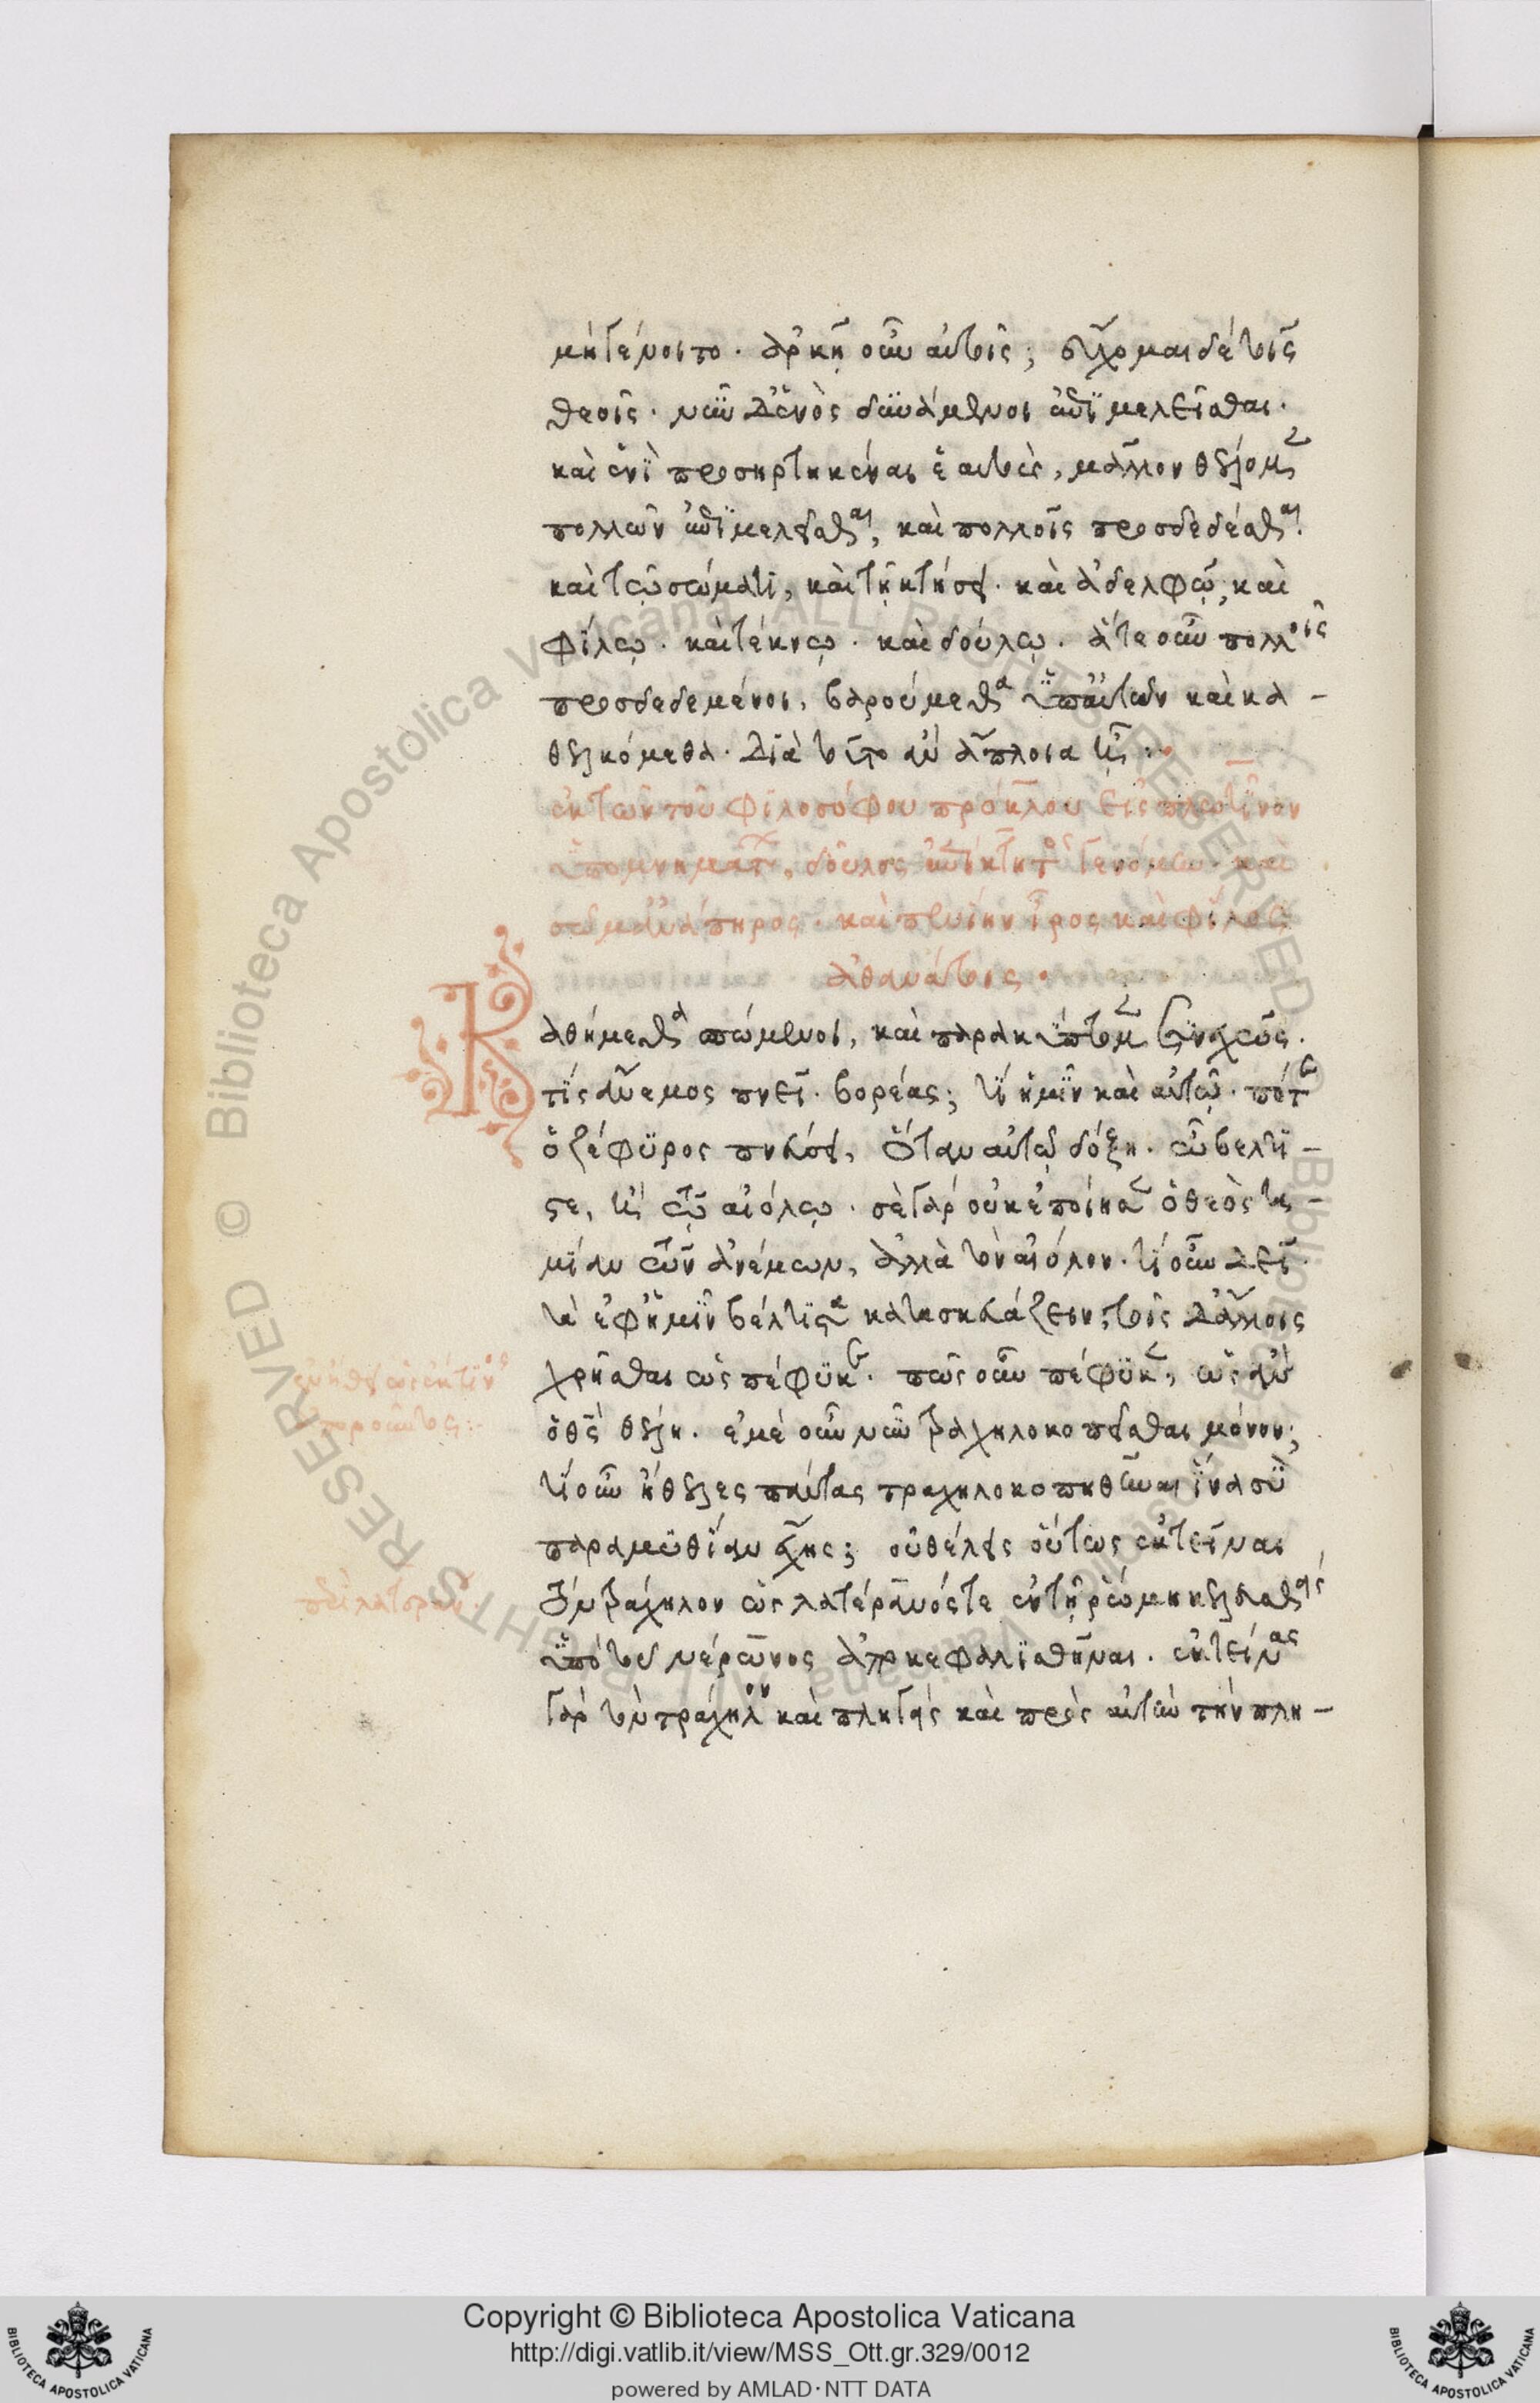 μὴ γένοιτο. ἀρκῇ οὖν αὐτοῖς; εὔχομαι δὲ τοῖς
θεοῖς. νῦν δ' ἑνὸς δυνάμενοι ἐπιμελεῖσθαι.
καὶ ἑνὶ προσηρτηκέναι ἑαυτοὺς, μᾶλλον θέλομεν
πολλῶν ἐπιμελεῖσθαι, καὶ πολλοῖς προσδεδέσθαι.
καὶ τῷ σώματι, καὶ τῇ κτήσει. καὶ ἀδελφῷ, καὶ
φίλῳ. καὶ τέκνῳ. καὶ δούλῳ. ἅτε οὖν πολλοῖς
προσδεδεμένοι, βαρούμεθα ὑπ' αὐτῶν καὶ κα-
θελκόμεθα. διὰ τοῦτο ἂν ἄπλοια ᾖ:
ἐκ τῶν τοῦ φιλοσόφου πρόκλου εἰς πλωτῖνον
ὑπομνημάτων, δοῦλος ἐπίκτητος γενόμην. καὶ
σῶμ' ἀνάπηρος. καὶ πενίην ἶρος καὶ φίλος
ἀθανάτοις.
Καθήμεθα σπώμενοι, καὶ παρακύπτομεν συνεχῶς.
τίς ἄνεμος πνεῖ. βορέας; τί ἡμῖν καὶ αὐτῷ. πότε
ὁ ζέφυρος πνεύσει, ὅταν αὐτῷ δόξῃ. ὦ βέλτι-
στε, ἢ τῷ αἰόλῳ. σὲ γὰρ οὐκ ἐποίησεν ὁ θεὸς τα-
μίαν τῶν ἀνέμων, ἀλλὰ τὸν αἰόλον. τί οὖν δεῖ
τὰ ἐφ' ἡμῖν βέλτιστα κατασκευάζειν, τοῖς δ' ἄλλοις
χρῆσθαι ὡς πέφυκε. πῶς οὖν πέφυκεν, ὡς ἂν
ὁ θεὸς θέλῃ. ἐμὲ οὖν νῦν τραχηλοκοπεῖσθαι μόνον;
τί οὖν ἤθελες πάντας τραχηλοκοπηθῆναι ἵνα σὺ
παραμυθίαν ἔχῃς; οὐ θέλεις οὕτως ἐκτεῖναι
τὸν τράχηλον ὡς λατερανός τε ἐν τῇ ῥώμῃ κελευσθεὶς
ὑπὸ τοῦ νέρωνος ἀποκεφαλισθῆναι. ἐκτείνας
γὰρ τὸν τράχηλον καὶ πληγεὶς καὶ πρὸς αὐτὴν τὴν πλη-
Copyright © Biblioteca Apostolica Vaticana
http://digi.vatlib.it/view/MSS_Ott.gr.329/0012
powered by AMLAD·NTT DATA